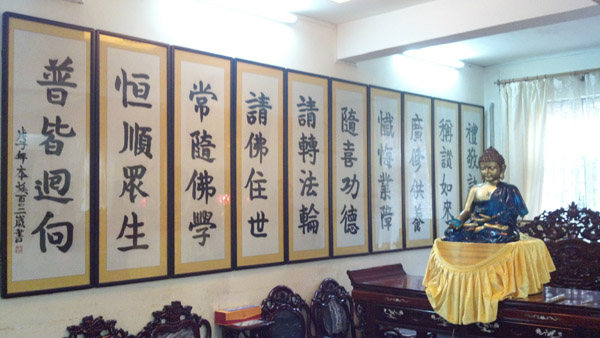 禮敬諸
稱讚如來
廣修供養
懺悔業障
隨喜功德
請轉法輪
請佛住世
常隨佛學
恒順眾生
普皆迴向
本煥百三歲書